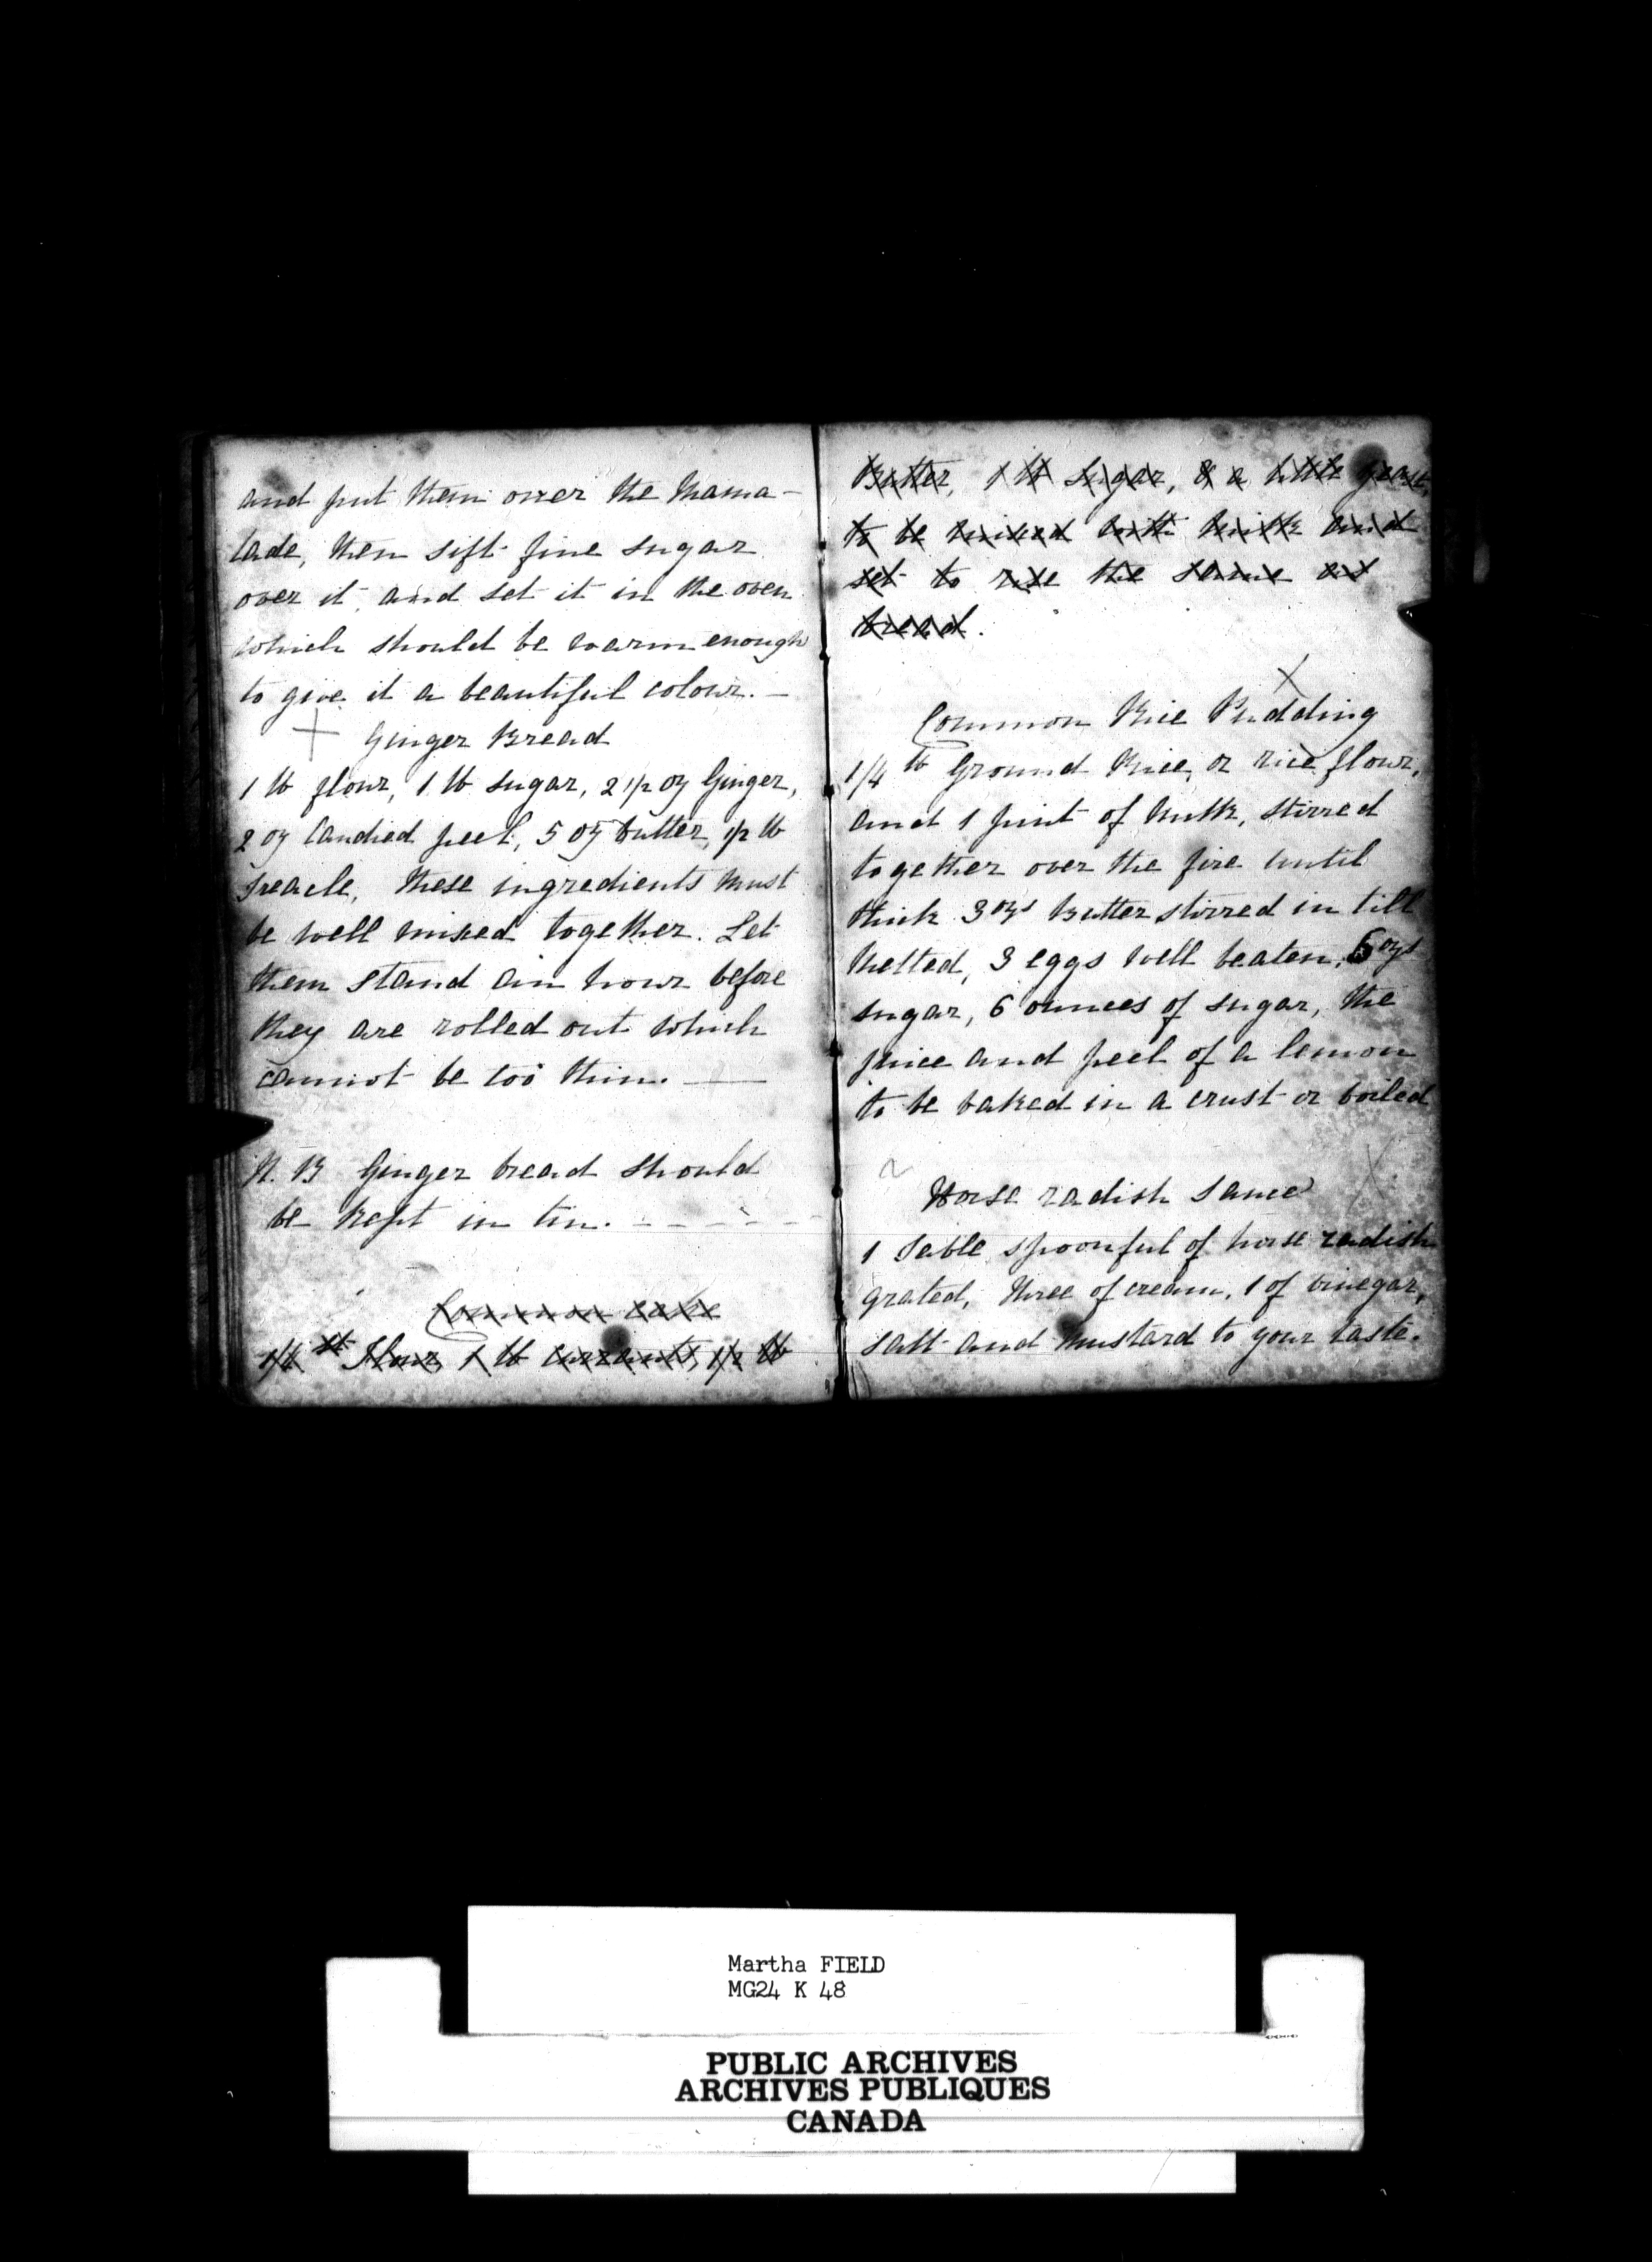 and put them over the Mama-
lade, then sift fine sugar
over it, and set it in the oven
which should be warm enough
to give it a beautiful colour. —
+ Ginger Bread
1 lb flour, 1 lb sugar, 2 1/2 oz Ginger,
2 oz Candied peel, 5 oz butter, 1/2 lb
Treacle, These ingredients must
be well mixed together. Let
them stand an hour before
they are rolled out which
cannot be too thin. —
N. B Ginger bread should
be kept in tin. - - - - -
Common cake
st Flour, 1 lb Currants, 1/2 lb
Butter, 1 lb Sugar, & a little yeast,
to be mixed with milk and
set to rise the same as
bread.
X
Common Rice Pudding
1/4 lb Ground Rice, or rice flour,
and 1 pint of Milk, stirred
together over the fire until
thick 3 ozs Butter stirred in till
Melted, 3 eggs well beaten, 6 ozs
sugar, 6 ounces of sugar, the
juice and peel of a lemon
to be baked in a crust or boiled
Horse radish Sauce X
1 Table spoonful of horse radish
grated, three of cream, 1 of vinegar,
salt and Mustard to your taste.
Martha FIELD
MG24 K 48
PUBLIC ARCHIVES
ARCHIVES PUBLIQUES
CANADA